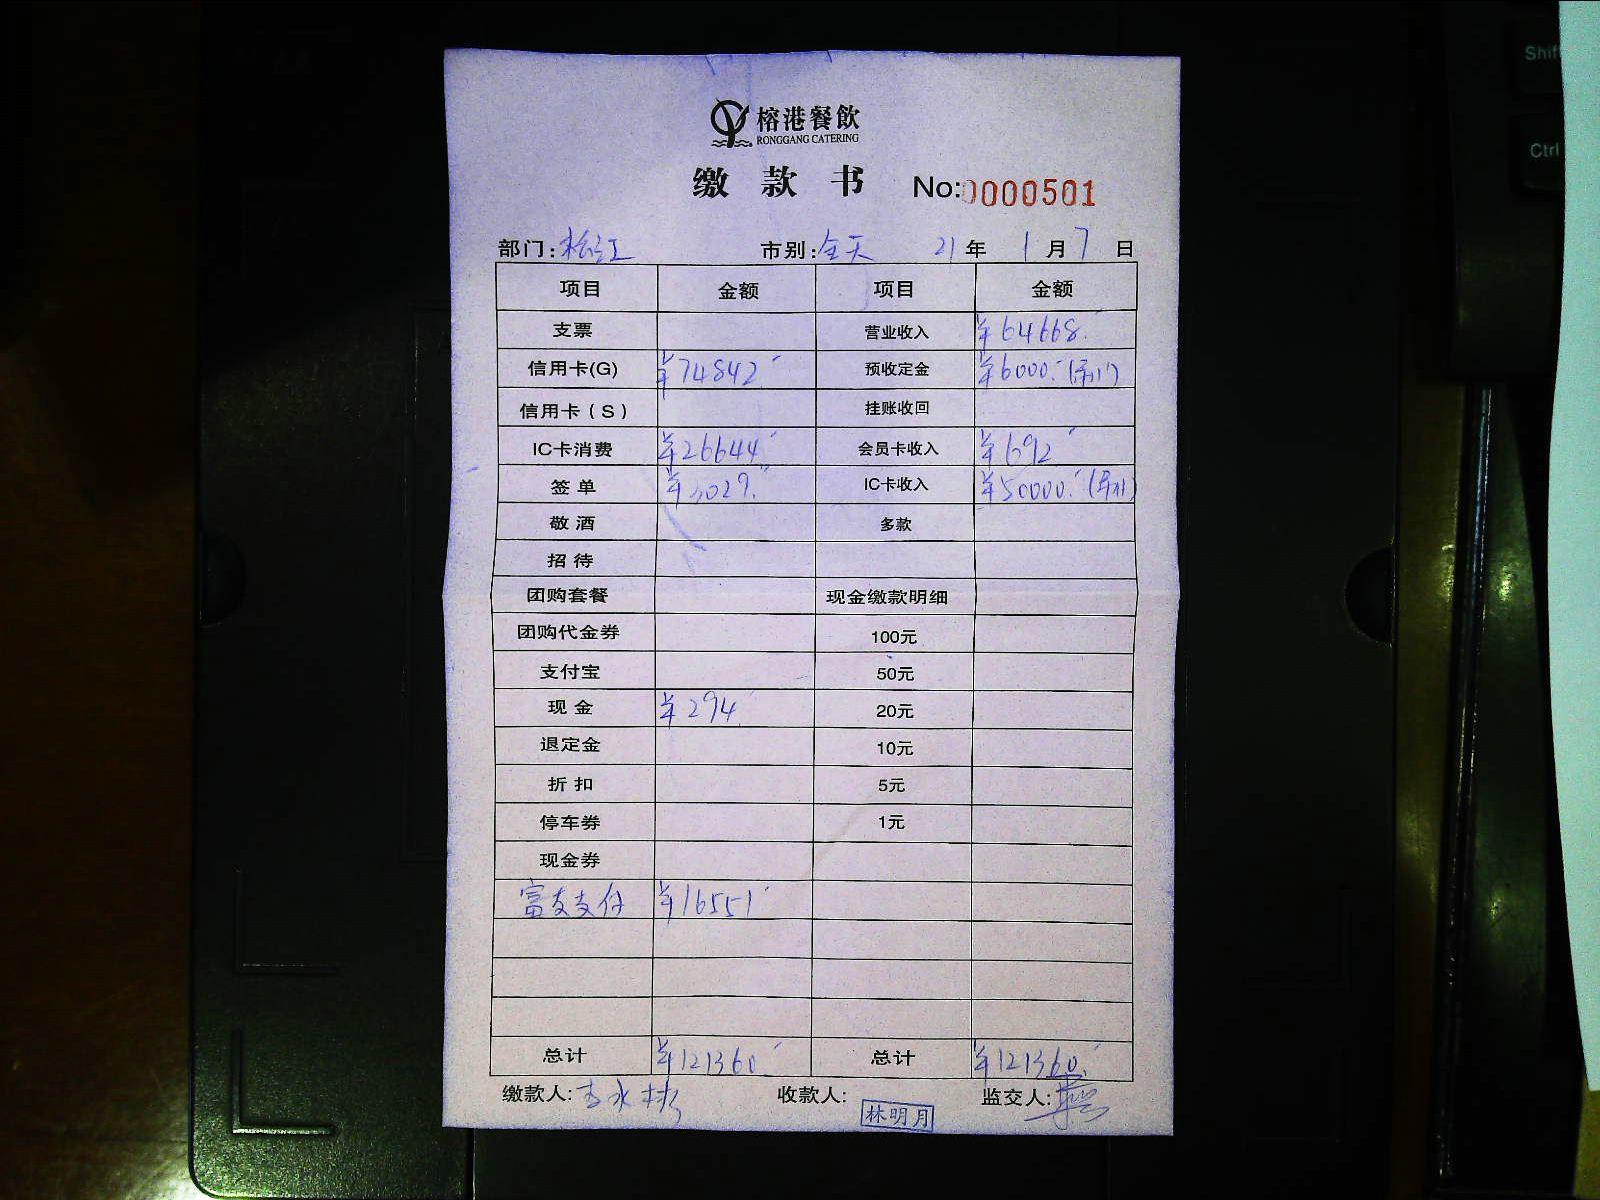 榕港餐飲
RONGGANG CATERING
缴款书 No:0000501
部门:松江 市别:全天 21年1月7日
项目 金额 项目 金额
支票 营业收入 ¥64668.
信用卡(G) ¥74842 预收定金 ¥6000.
信用卡(S) 挂账收回
IC卡消费 ¥26644 会员卡收入 ¥692
签单 ¥3029. IC卡收入 ¥50000.
敬酒 多款
招待
团购套餐 现金缴款明细
团购代金券 100元
支付宝 50元
现金 ¥294 20元
退定金 10元
折扣 5元
停车券 1元
现金券
富友支付 ¥16551
总计 ¥121360 总计 ¥121360.
缴款人: 收款人: 林明月 监交人:
Shift
Ctrl